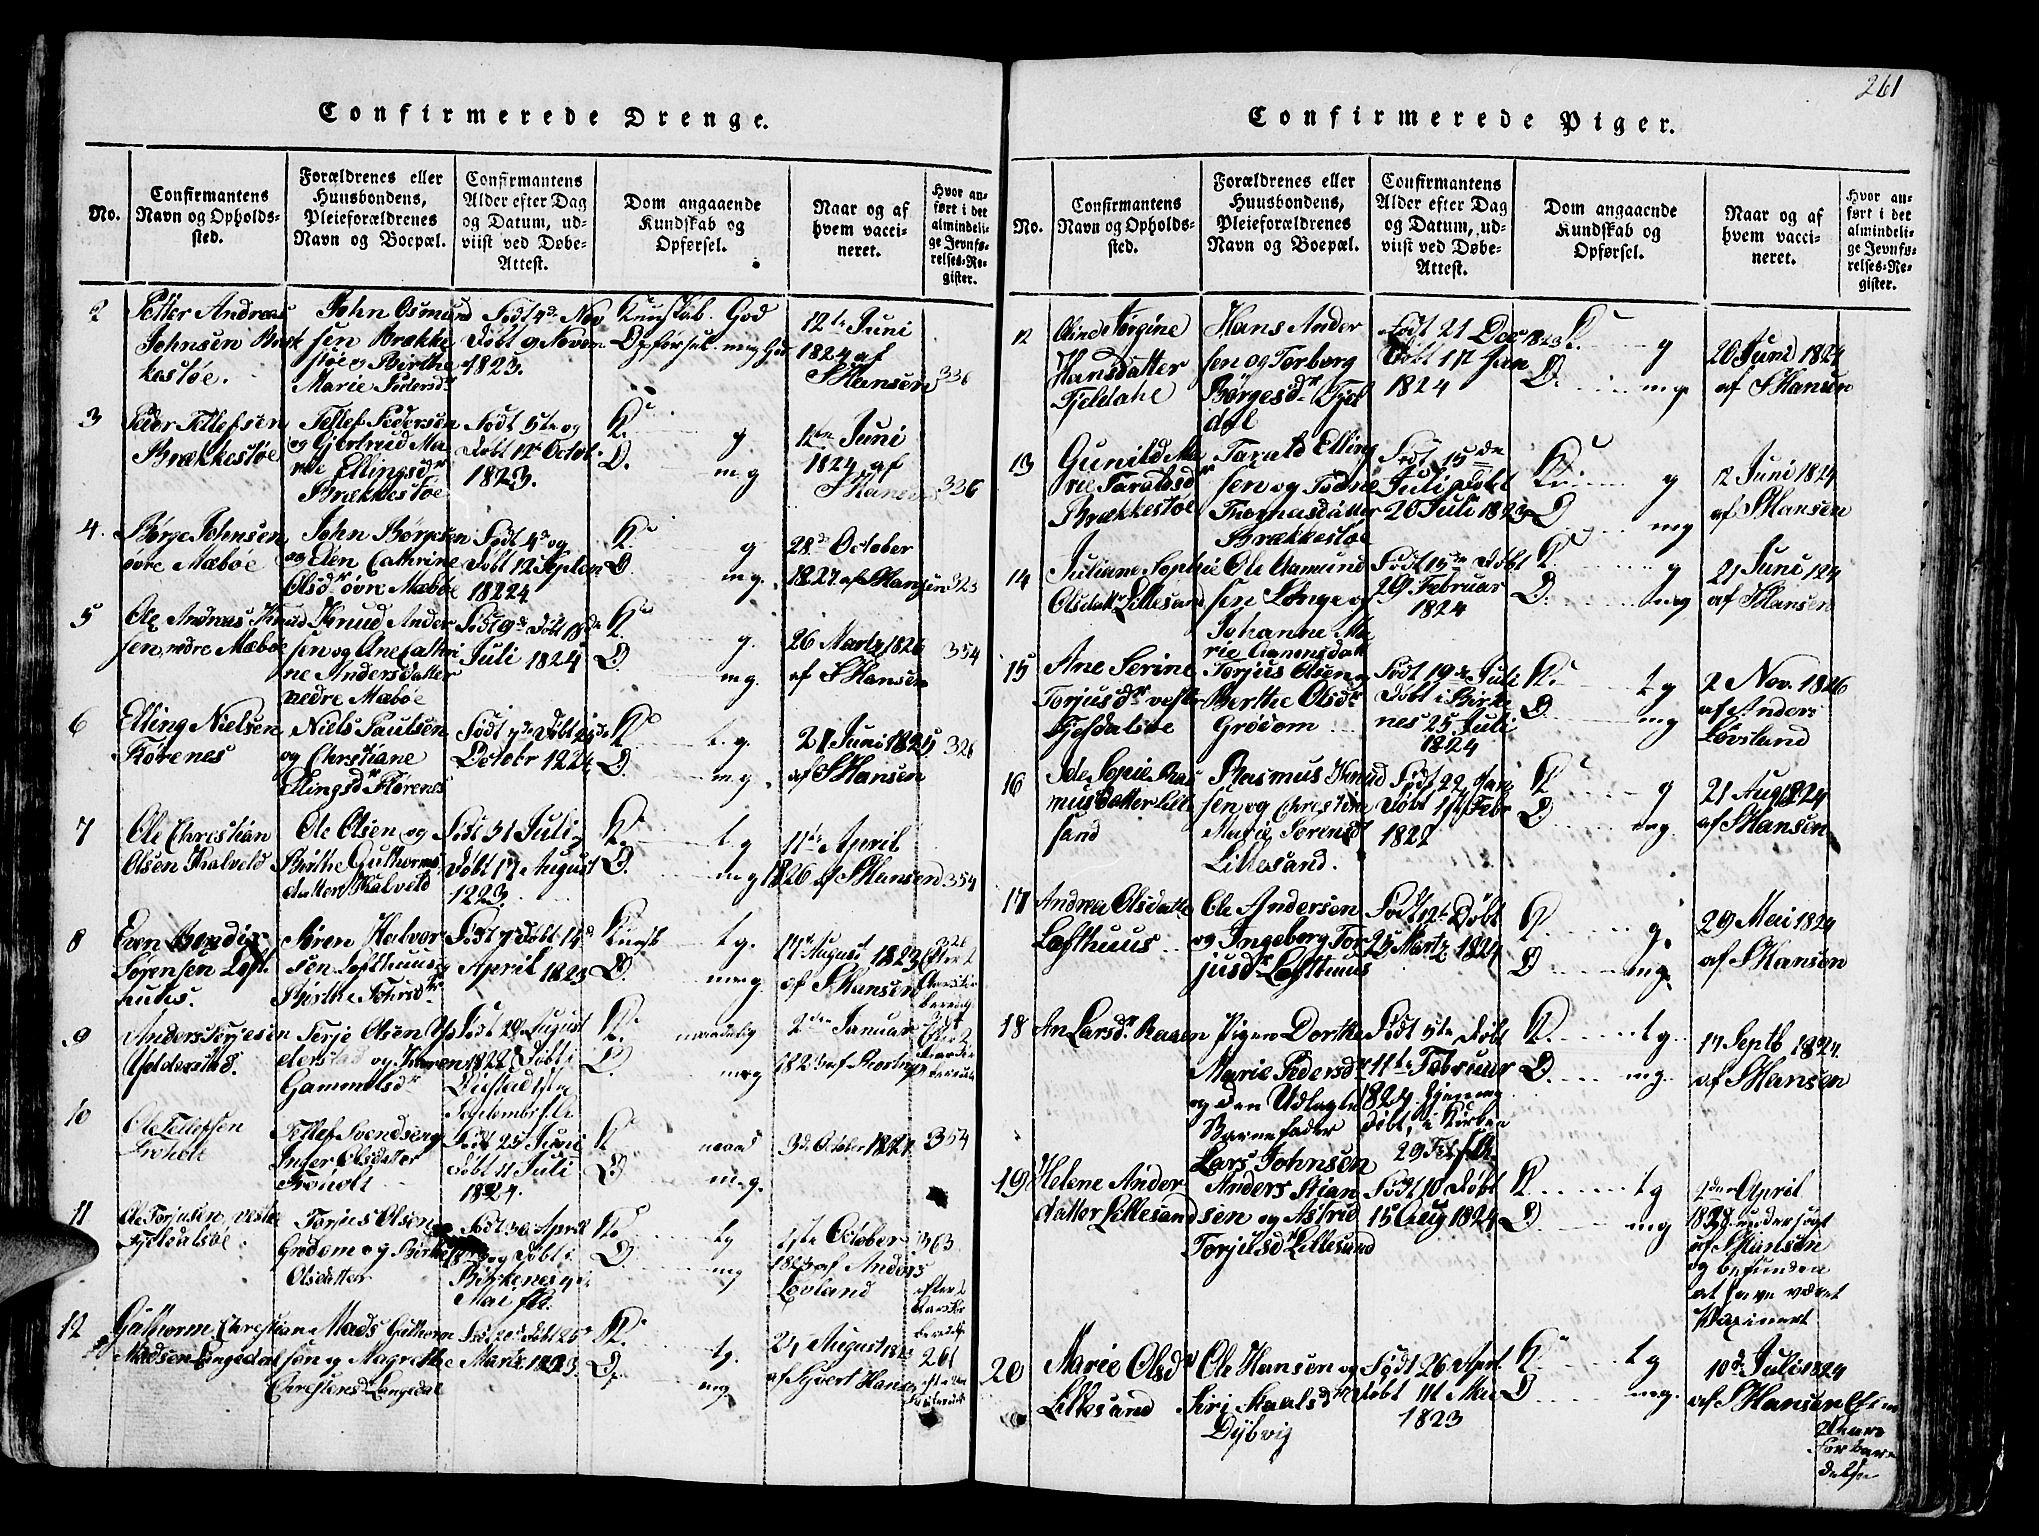 261
Confirmerede Drenge.
No.
Confirmantens
Navn og Opholds-
sted.
Forældrenes eller
Huusbondens,
Pleieforældrenes
Navn og Boepæl.
Confirmantens
Alder efter Dag
og Datum, ud-
viist ved Døbe-
Attest.
Dom angaaende
Kundskab og
Opførsel.
Naar og af
hvem vacci-
neret.
Hvor an-
ført i det
almindeli-
ge Jevnfø-
relses-Re-
gister.
2
Petter Andreas
Johnsen
kestøe.
John Osmund
sen Brække
støe og Birthe
Marie Pedersdr
Født 4de Nov
Døbt 9 Novem
1823.
Kunskab. God
Opførsel. meg God
12te Juni
1824 af
S Hansen
336
3
Peder Tellefsen
Brækkestøe
Tellef Pedersen
og Gjertrud Ma
rie Ellingsdr
Brækkestøe
Født 5te og
Døbt 12te Octobr
1823.
K. g
O. mg
12te Juni
1824 af
S Hansen
336
4.
Børge Johnsen
øvre Mæbøe
John Børgesen
og Elen Cathrine
Olsdr øvre Mæbøe
Født 4de og
Døbt 12 Septem
K. g
O. mg.
28de October
1827 af S Hansen
323
5
Ole Andreas Knud
sen nedre Mæbøe
Knud Ander
sen og Ane Cathri
ne Andersdatter
nedre Mæbøe
Født 9de Døbt 18de
Juli 1824
K. g.
O. mg.
26 Martz 1826
af S Hansen
354
6
Elling Nielsen
Niels Paulsen
og Christiane
Ellingsdr
Født 7de Døbt
Octobr
K. t. g.
O. mg.
21 Juni
af S Hansen
326
7
Ole Christian
Olsen Kalveld
Ole Olsen og
Birthe Guthorms
datter Kalveld
Født 31 Juli
Døbt 17 August
1823
K. t g
O. mg
11te April
1826 af S Hansen
354
8
Even Bendix
Sørensen Loft
huus.
Søren Halvor
sen Lofthuus og
Birthe
Født 7 Døbt 14de
April 1823
Kunsk t g.
O. meg.
17 August 1823
af S Hansen
326
Efter 2
9
Anders Terjesen
Terje Olsen
og Karen
Gammelsdr
Født 29 August
1822 Døbt i
K. maadelig
O. meg
2den Januar
1823 af
10
Ole Tellefsen
Tellef Svendsen
Inger Olsdatter
Født 25 Juni
Døbt 11 Juli
1824.
K maad
O m.g.
3de October
354
11
Ole Torjusen, vestre
Torjus Olsen
Grødom og Birthe
Olsdatter
Født 30 April
og Døbt i
Birkenes 4de
Mai
K. tg
O. mg
1ste October
1823 af Anders
Løvland
363
efter 2
12
Guthorm Christian
Madsen Langedal
Mads Guthorm
sen og Magrethe
Christensdr Langedal
Døbt 25de
Martz 1823.
K. tg.
O. mg.
24 August 1823
af Hansen
261
Confirmerede Piger.
No.
Confirmantens
Navn og Opholds-
sted.
Forældrenes eller
Huusbondens,
Pleieforældrenes
Navn og Boepæl.
Confirmantens
Alder efter Dag
og Datum, ud-
viist ved Døbe-
Attest.
Dom angaaende
Kundskab og
Opførsel.
Naar og af
hvem vacci-
neret.
Hvor an-
ført i det
almindeli-
ge Jevnfø-
relses-Re-
gister.
12
Oline Jørgine
Hansdatter
Fjeldahl
Hans Ander
sen og Torborg
Børgesdr Fjel
dal
Født 21 Decr 1823
Døbt 1st Jan
1824
K. g
O. mg.
20 Juni 1824
af S Hansen
13
Gunild Ma
rie Taraldsdr
Brækkestøe
Tarald Elling
sen og Todne
Thomasdatter
Brækkestøe
Født 15de
Juli Døbt
20 Juli 1823
K. g
O. mg
12 Juni 1824
af S Hansen
14
Juliane Sophie
Olsdatter Lillesand
Ole Aamund
sen Longe og
Johanne Ma
rie
Født 15de Døbt
29 Februar
1824
K. g
O. mg
21 Juni 124
af S Hansen
15
Ane Serine
Torjusdr vestre
Torjus Olsen og
Berthe Olsdr
Grødom
Født 19de Juli
Døbt i Birke
nes 25 Juli
1824
K. t g
O. mg
2 Nov. 1826
af Anders
Løvsland
16
Sopie Ras
musdatter Lille
sand
Rasmus Knud
sen og Christine
Marie Sørensdr
Lillesand.
Født 22 Jan
Døbt 1st Febr
K. g
O. mg.
21 Aug 1824
af S Hansen
17
Andrea Olsdatter
Lofthuus
Ole Andersen
og Ingeborg Tor
jusdr Lofthuus
Født 12te Døbt
25 Martz 1824
K. g.
O. mg.
29 Mai 1824
af S Hansen
18
An Larsdr
Pigen Dorthe
Marie Pedersdr
og den Udlagte
Barnefader
Lars Johnsen
Født 5te Døbt
11te Februar
1824 Hjemme
døbt, i Kirken
29 Feb
K. t g
O. mg.
17 Septb 1824.
af S Hansen
19
Helene Ander
datter Lillesand
Anders Stian
sen og Astrid
Torjusdr Lillesand
Født 10 Døbt
15 Aug 1824
K. t g
O. mg
2den April
undersøgt
af S Hansen
og befunden
at have været
Vaxinert
20
Marie Olsdr
Lillesand
Ole Hansen og
Siri
Dybvig
Født 26 Apr.
Døbt 11 Mai
1823
K. t g
O. mg.
10de Juli 1824
af S Hansen Efter
2 Aars
Forbere
delse